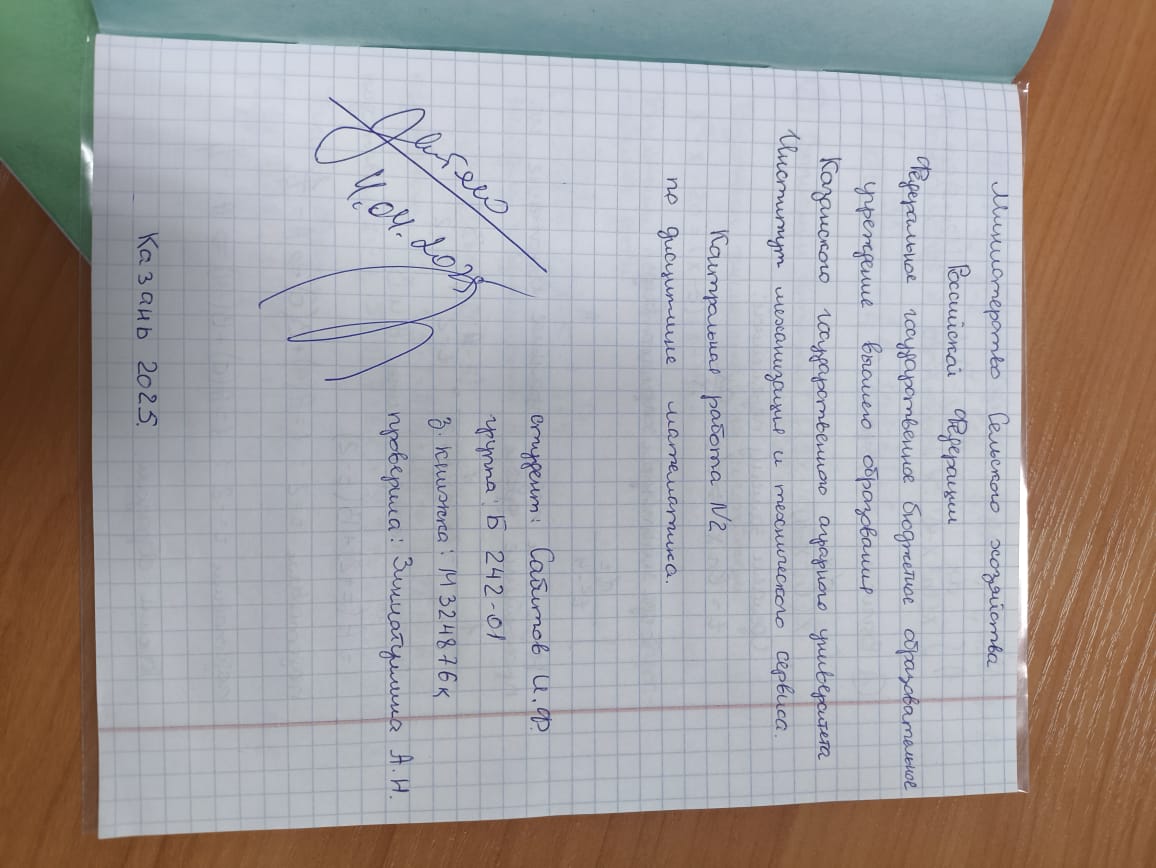 Министерство Сельского хозяйства
Российской Федерации
Федеральное государственное бюджетное образовательное
учреждение высшего образования
Казанского государственного аграрного университета
Институт механизации и технического сервиса.
Контрольная работа №2
по дисциплине математика.
студент: Сабитов И.Ф.
группа: Б 242-01
З. книжка: М324876к
проверила: Зиннатуллина А.Н.
Зачтено
11.04.2025
Казань 2025.